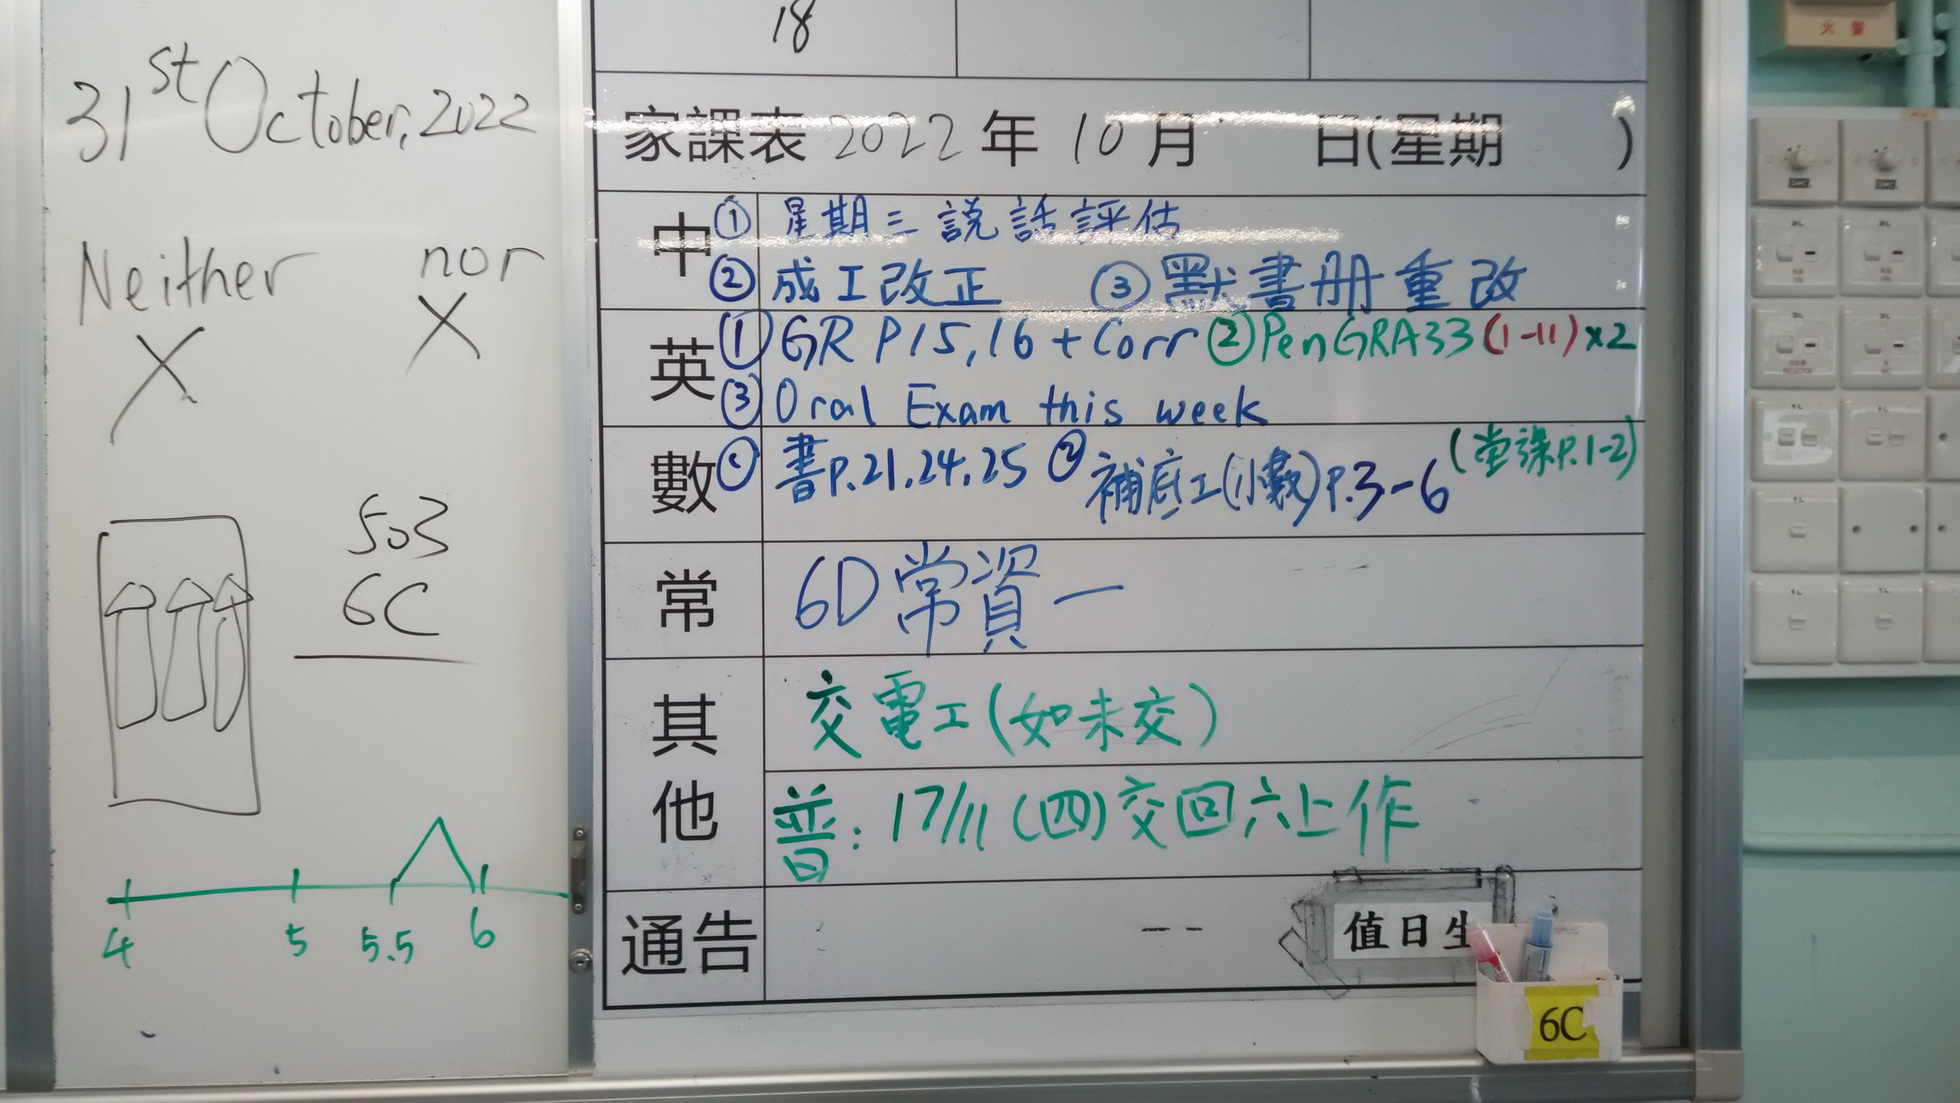 31st October, 2022
Neither nor
X X
503
6C
4 5 5.5 6
18
家課表 2022 年 10 月 日(星期 )
中 ① 星期三說話評估
② 成工改正 ③ 默書冊重改
英 ① GR P15,16 + Corr ② Pen GRA33 (1-11) x2
③ Oral Exam this week
數 ① 書P.21,24,25 ② 補底工(小數)P.3-6 (堂課P.1-2)
常 6D常資一
其他 交電工(如未交)
普: 17/11 (四)交回六上作
通告
值日生
6C
火警